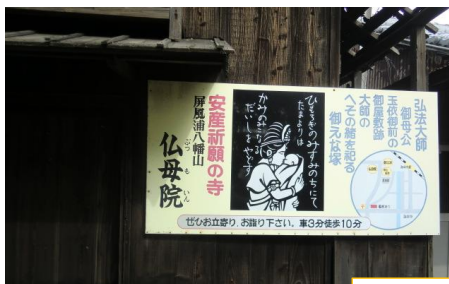 弘法大師
御母公
玉依御前の
御屋敷跡
大師の
へその緒を祀る
御えな塚
ひもろぎのみすみのちにて
たまよりは
かみのみこなる
だいしをやどす
安産祈願の寺
屏風浦八幡山
仏母院
ぶつもいん
ぜひお立寄り お詣り下さい。車3分徒歩10分